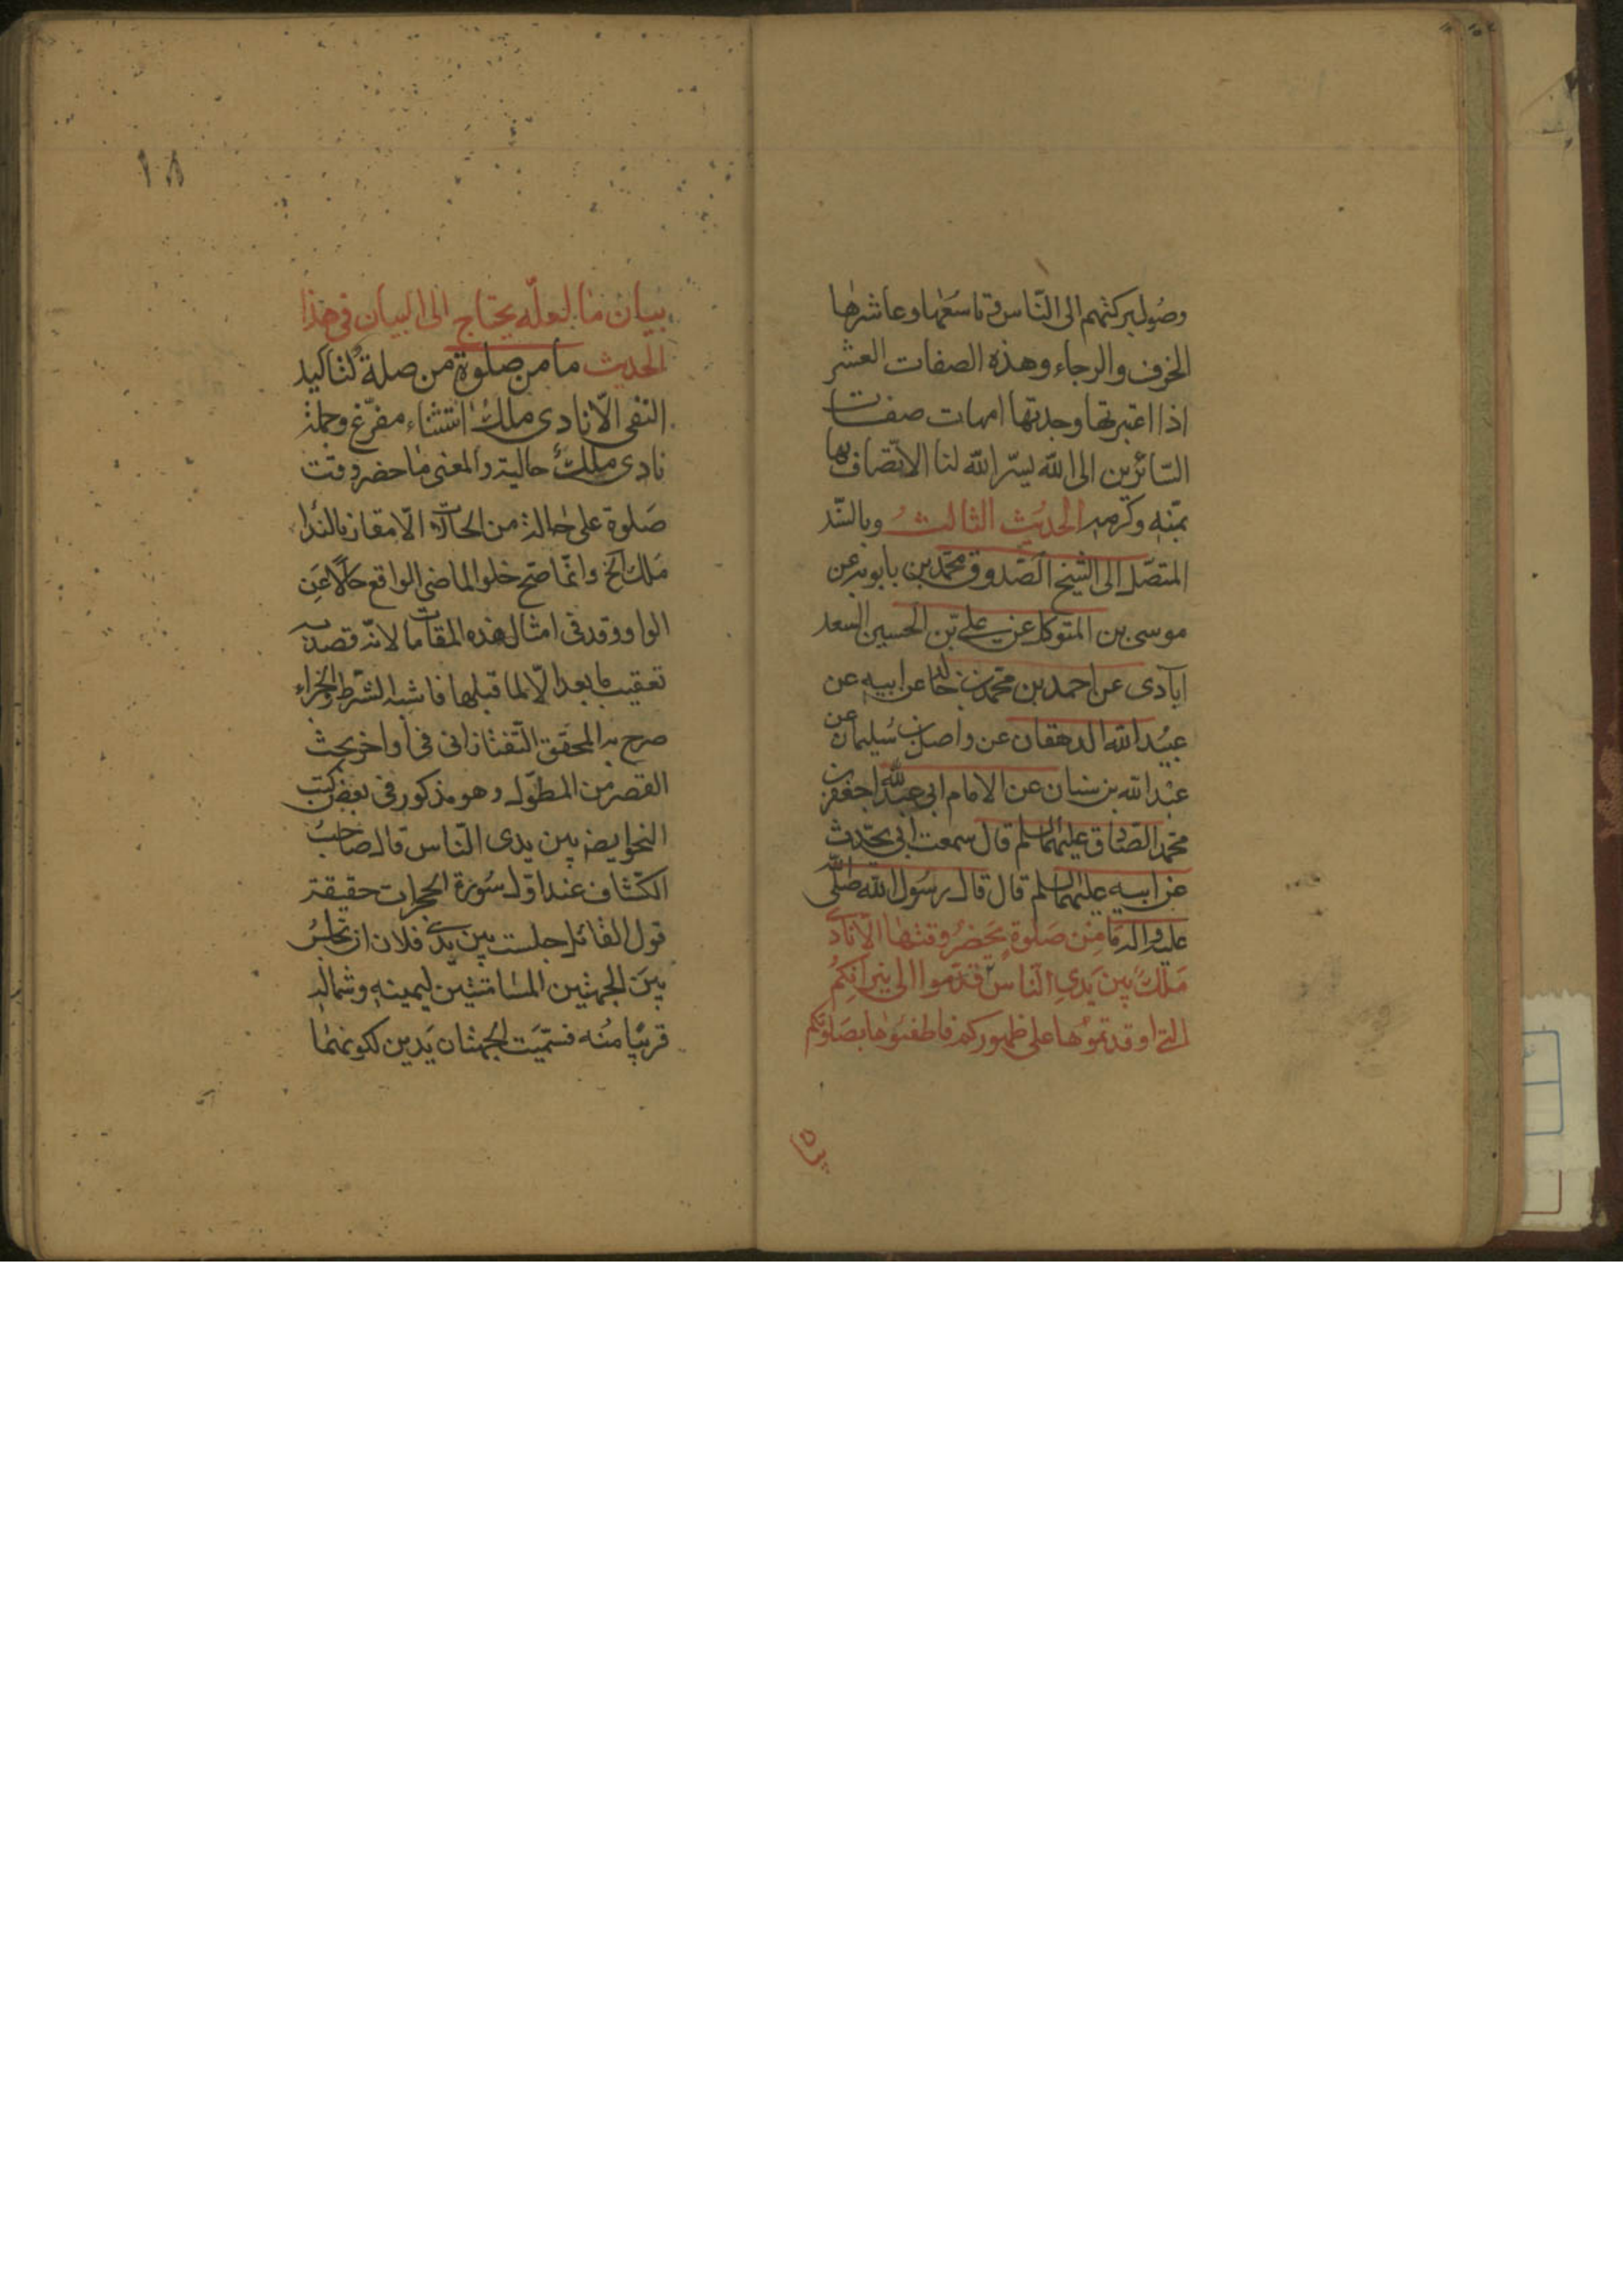 وصول بركتهم الى النّاس وتاسعها وعاشرها
الخوف والرجاء وهذه الصفات العشر
اذا اعتبرتها وجدتها امهات صفات
السّائرين الى الله يسّر الله لنا الاتّصاف بها
بمنّه وكرمه الحديث الثالث وبالسّند
المتصّل الى الشيخ الصّدوق محمّد بن بابويه عن
موسى بن المتوكل عن علي بن الحسين السعد
ابادى عن احمد بن محمّد بن خالد عن ابيه عن
عبيد الله الدهقان عن واصل بن سليمان عن
عبد الله بن سنان عن الامام ابى عبد الله جعفر بن
محمّد الصّادق عليهما السلم قال سمعت ابى يحدّث
عن ابيه عليهما السلم قال قال رسول الله صلّى الله
عليه واله ما من صلوة يحضر وقتها الّا نادى
ملك بين يدى النّاس قوموا الى نيرانكم
التى اوقدتموها على ظهوركم فاطفئوها بصلوتكم
بيان
١٨
بيان ما لعلّه يحتاج الى البيان فى هذا
الحديث ما من صلوة من صلة لتاكيد
النفى الّا نادى ملك استثناء مفرّغ وجملة
نادى ملك حالية والمعنى ما حضر وقت
صلوة على حالة من الحالات الّا مقارنا لنداء
ملك الخ وانّما صحّ خلو الماضى الواقع حالًا عن
الواو وقد فى امثال هذه المقامات لانّه قصد به
تعقيب ما بعد الّا لما قبلها فاشبه الشرط والجزاء
صرح به المحقق التّفتازانى فى اواخر بحث
القصر من المطوّل وهو مذكور فى بعض كتب
النحو ايضا بين يدى النّاس قال صاحب
الكشّاف عند اوّل سورة الحجرات حقيقة
قول القائل جلست بين يدى فلان ان تجلس
بين الجهتين المسامتتين ليمينه وشماله
قريبا منه فسمّيت الجهتان يدين لكونهما